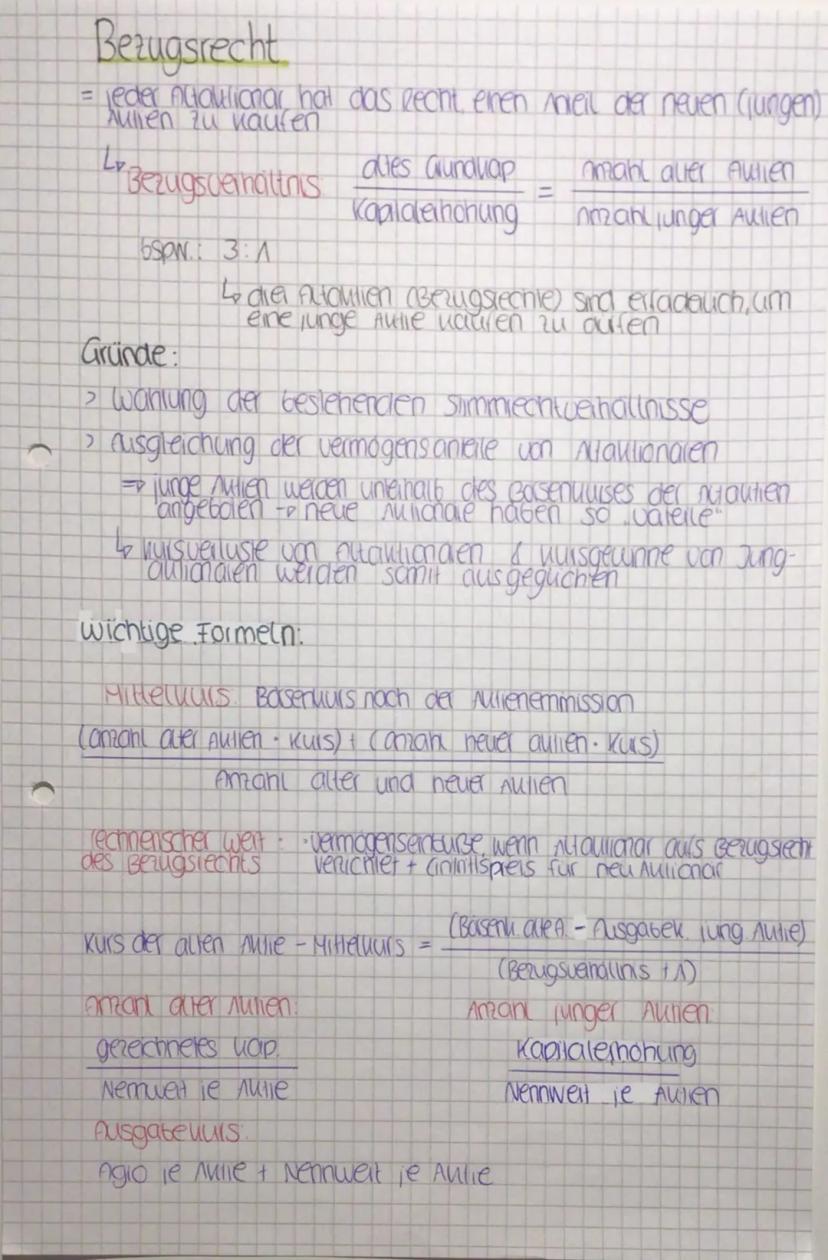 Bezugsrecht
= jeder Altaktionär hat das Recht, einen Anteil der neuen (jungen)
Aktien zu kaufen
↳ Bezugsverhältnis altes Grundkap / Kapitalerhöhung = Anzahl alter Aktien / Anzahl junger Aktien
bspw.: 3:1
↳ drei Altaktien (Bezugsrechte) sind erforderlich, um
eine junge Aktie kaufen zu dürfen
Gründe:
> Wahrung der bestehenden Stimmrechtverhältnisse
> Ausgleichung der Vermögensanteile von Altaktionären
⇒ junge Aktien werden unerhalb des Börsenkurses der Altaktien
angeboten → neue Aktionäre haben so „Vorteile"
↳ Kursverluste von Altaktionären & Kursgewinne von Jung-
aktionären werden somit ausgeglichen
Wichtige Formeln:
Mittelkurs: Börsenkurs nach der Aktienemmission
(Anzahl alter Aktien · Kurs) + (Anzahl neuer Aktien · Kurs)
Anzahl alter und neuer Aktien
rechnerischer Wert : · Vermögenseinbuße, wenn Altaktionär aufs Bezugsrecht
des Bezugsrechts verzichtet + Eintrittspreis für neu Aktionär
Kurs der alten Aktie - Mittelkurs = (Börsenk. alte A. - Ausgabek. jung. Aktie) / (Bezugsverhältnis + 1)
Anzahl alter Aktien: Anzahl junger Aktien:
gezeichnetes Kap. Kapitalerhöhung
Nennwert je Aktie Nennwert je Aktien
Ausgabekurs:
Agio je Aktie + Nennwert je Aktie